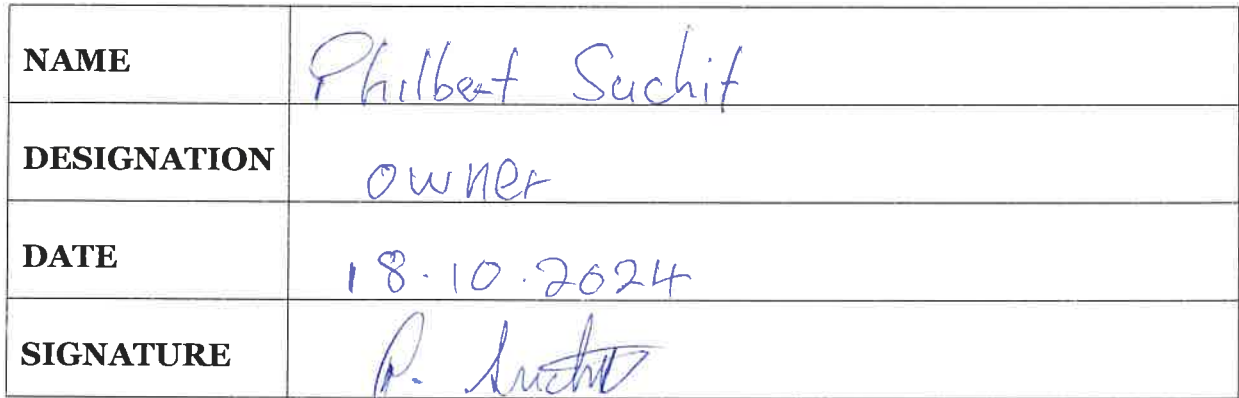 NAME Philbert Suchit
DESIGNATION owner
DATE 18.10.2024
SIGNATURE P. Suchit